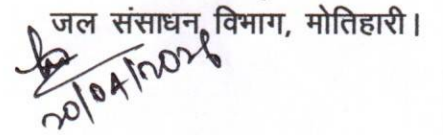 जल संसाधन विभाग, मोतिहारी।
20/04/2026